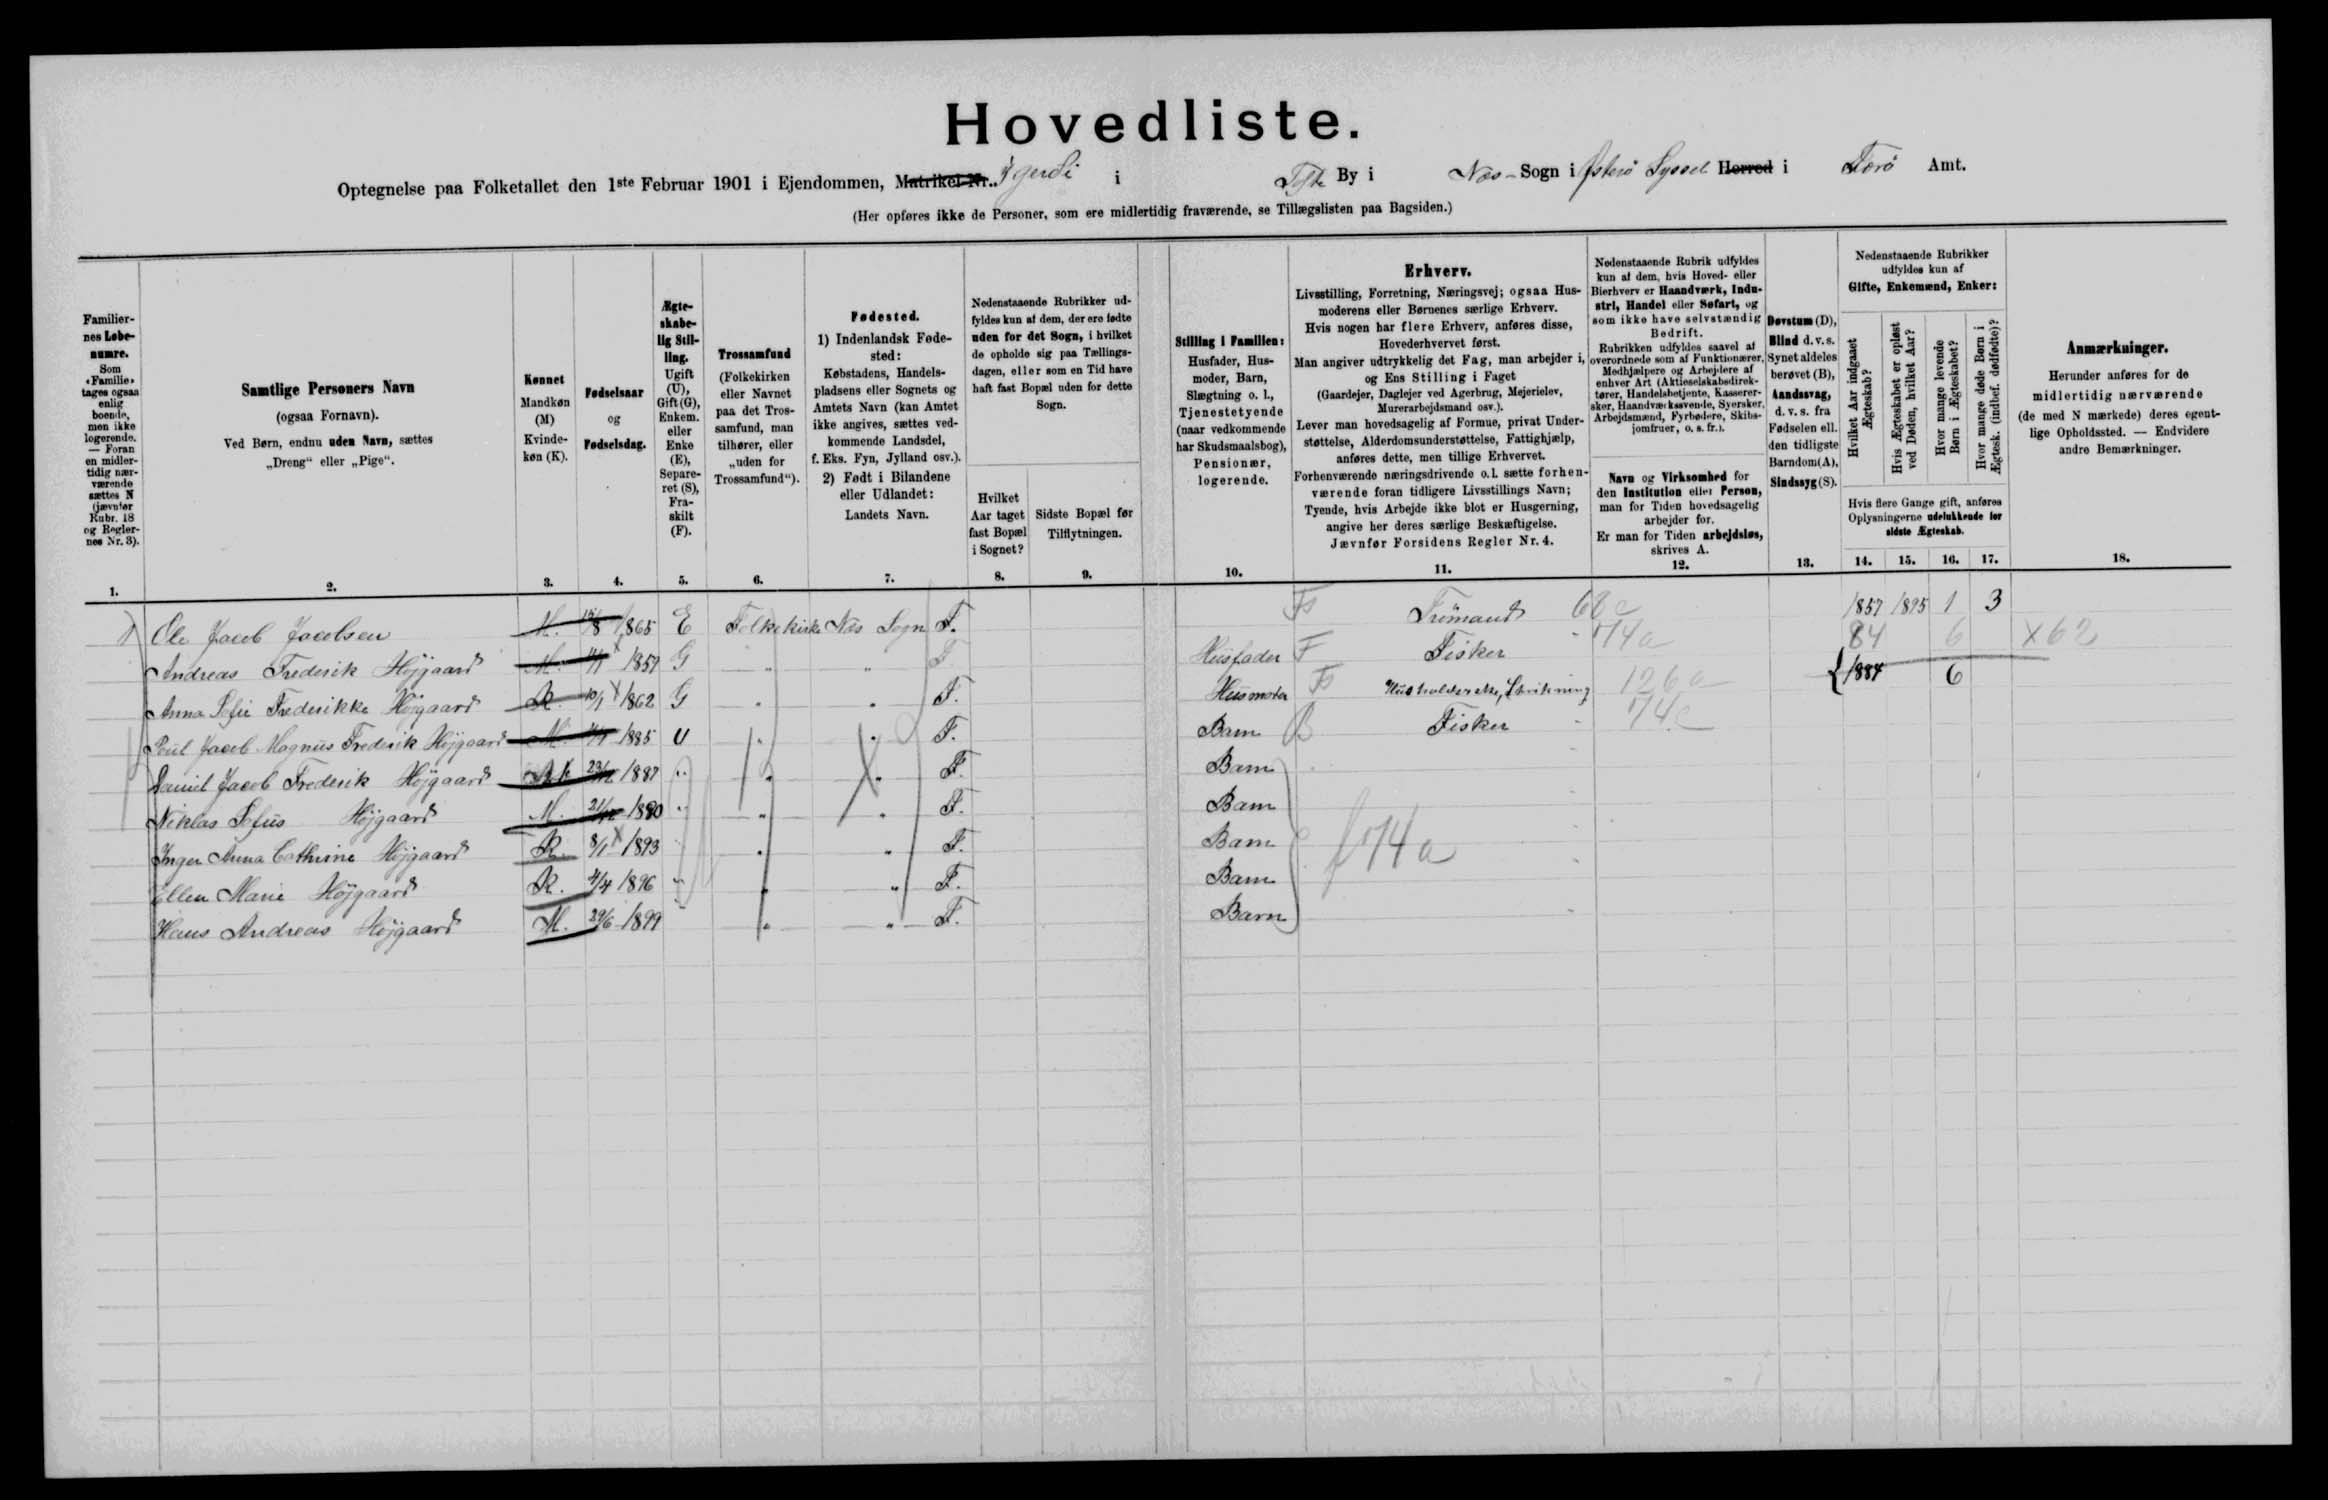 Hovedliste.
Optegnelse paa Folketallet den 1ste Februar 1901 i Ejendommen, Matrikel-Nr.. Í gerdi i Tofte By i Næs-Sogn i Østerø Syssel Herred i Færø Amt.
(Her opføres ikke de Personer, som ere midlertidig fraværende, se Tillægslisten paa Bagsiden.)
Familier-
nes Løbe-
numre.
Som
«Familie»
tages ogsaa
enlig
boende,
men ikke
logerende.
— Foran
en midler-
tidig nær-
værende
sættes N
(jævnfør
Rubr. 18
og Regler-
nes Nr. 3).
1.
Samtlige Personers Navn
(ogsaa Fornavn).
Ved Børn, endnu uden Navn, sættes
„Dreng“ eller „Pige“.
2.
Kønnet
Mandkøn
(M)
Kvinde-
køn (K).
3.
Fødselsaar
og
Fødselsdag.
4.
Ægte-
skabe-
lig Stil-
ling.
Ugift
(U),
Gift (G),
Enkem.
eller
Enke
(E),
Separe-
ret (S),
Fra-
skilt
(F).
5.
Trossamfund
(Folkekirken
eller Navnet
paa det Tros-
samfund, man
tilhører, eller
„uden for
Trossamfund“).
6.
Fødested.
1) Indenlandsk Føde-
sted:
Købstadens, Handels-
pladsens eller Sognets og
Amtets Navn (kan Amtet
ikke angives, sættes ved-
kommende Landsdel,
f. Eks. Fyn, Jylland osv.).
2) Født i Bilandene
eller Udlandet:
Landets Navn.
7.
Nedenstaaende Rubrikker ud-
fyldes kun af dem, der ere fødte
uden for det Sogn, i hvilket
de opholde sig paa Tællings-
dagen, eller som en Tid have
haft fast Bopæl uden for dette
Sogn.
Hvilket
Aar taget
fast Bopæl
i Sognet?
8.
Sidste Bopæl før
Tilflytningen.
9.
Stilling i Familien:
Husfader, Hus-
moder, Barn,
Slægtning o. l.,
Tjenestetyende
(naar vedkommende
har Skudsmaalsbog),
Pensionær,
logerende.
10.
Erhverv.
Livsstilling, Forretning, Næringsvej; ogsaa Hus-
moderens eller Børnenes særlige Erhverv.
Hvis nogen har flere Erhverv, anføres disse,
Hovederhvervet først.
Man angiver udtrykkelig det Fag, man arbejder i,
og Ens Stilling i Faget
(Gaardejer, Daglejer ved Agerbrug, Mejerielev,
Murerarbejdsmand osv.).
Lever man hovedsagelig af Formue, privat Under-
støttelse, Alderdomsunderstøttelse, Fattighjælp,
anføres dette, men tillige Erhvervet.
Forhenværende næringsdrivende o. l. sætte forhen-
værende foran tidligere Livsstillings Navn;
Tyende, hvis Arbejde ikke blot er Husgerning,
angive her deres særlige Beskæftigelse.
Jævnfør Forsidens Regler Nr. 4.
11.
Nedenstaaende Rubrik udfyldes
kun af dem, hvis Hoved- eller
Bierhverv er Haandværk, Indu-
stri, Handel eller Søfart, og
som ikke have selvstændig
Bedrift.
Rubrikken udfyldes saavel af
overordnede som af Funktionærer,
Medhjælpere og Arbejdere af
enhver Art (Aktieselskabsdirek-
tører, Handelsbetjente, Kasserer-
sker, Haandværkssvende, Syersker,
Arbejdsmænd, Fyrbødere, Skibs-
jomfruer, o. s. fr.).
Navn og Virksomhed for
den Institution eller Person,
man for Tiden hovedsagelig
arbejder for.
Er man for Tiden arbejdsløs,
skrives A.
12.
Døvstum (D),
Blind d. v. s.
Synet aldeles
berøvet (B),
Aandssvag,
d. v. s. fra
Fødselen ell.
den tidligste
Barndom (A),
Sindssyg (S).
13.
Nedenstaaende Rubrikker
udfyldes kun af
Gifte, Enkemænd, Enker:
Hvilket Aar indgaaet
Ægteskab?
Hvis Ægteskabet er opløst
ved Døden, hvilket Aar?
Hvor mange levende
Børn i Ægteskabet?
Hvor mange døde Børn i
Ægtesk. (indbef. dødfødte)?
Hvis flere Gange gift, anføres
Oplysningerne udelukkende for
sidste Ægteskab.
14. 15. 16. 17.
Anmærkninger.
Herunder anføres for de
midlertidig nærværende
(de med N mærkede) deres egent-
lige Opholdssted. — Endvidere
andre Bemærkninger.
18.
Ole Jacob Jacobsen M. 15/8 1865 E Folkekirke Næs Sogn F. 1857 1895 1 3
Andreas Frederik Højgaard M. 1857 G " " F. Husfader F Fisker 174a 84 6 X62
Anna Sofie Frederikke Højgaard K. 10/1 1862 G " " F. Husmoder 126a {1884 6
Poul Jacob Magnus Frederik Højgaard M. 1885 U " " F. Barn B Fisker
Daniel Jacob Frederik Højgaard 1887 " " " F. Barn
Niklas Sofus Højgaard M. 1890 " " " F. Barn
Inger Anna Cathrine Højgaard K. 8/1 1893 " " " F. Barn f174a
Ellen Marie Højgaard K. 4/4 1896 " " " F. Barn
Hans Andreas Højgaard M. 29/6 1899 " " " F. Barn